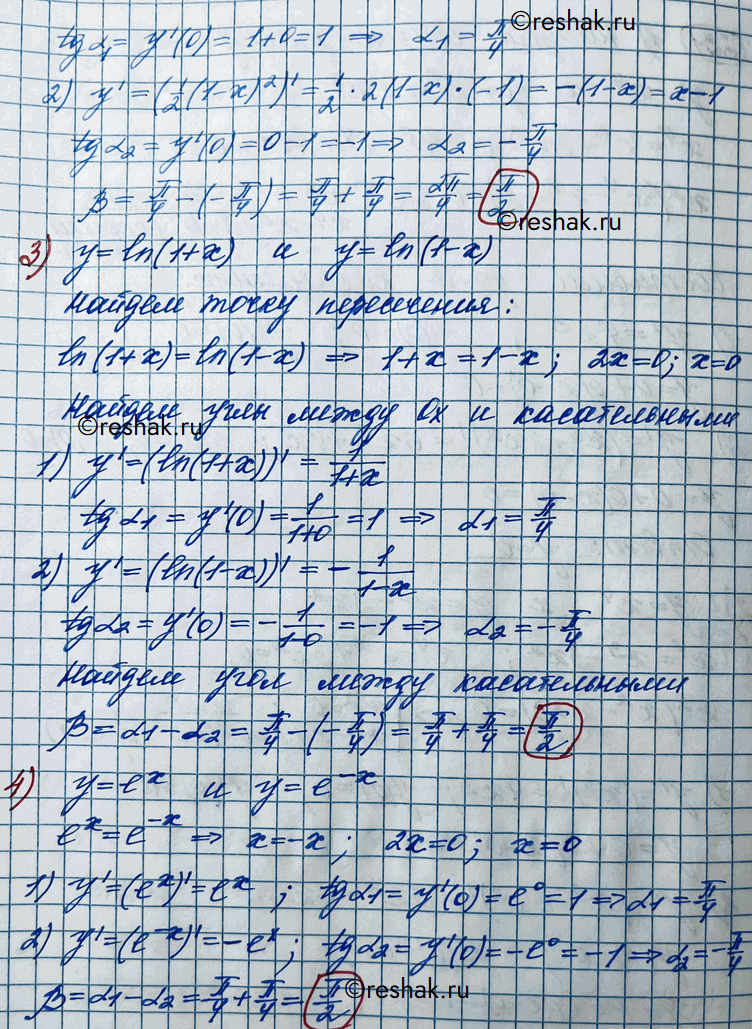 ©reshak.ru
tg α₁ = y'(0) = 1+0 = 1 ⇒ α₁ = π/4
2) y' = (1/2(1-x)²)' = 1/2 · 2(1-x) · (-1) = -(1-x) = x-1
tg α₂ = y'(0) = 0-1 = -1 ⇒ α₂ = -π/4
β = π/4 - (-π/4) = π/4 + π/4 = 2π/4 = π/2
©reshak.ru
3) y = ln(1+x) и y = ln(1-x)
Найдем точку пересечения:
ln(1+x) = ln(1-x) ⇒ 1+x = 1-x; 2x=0; x=0
Найдем углы между Ох и касательными
©reshak.ru
1) y' = (ln(1+x))' = 1/(1+x)
tg α₁ = y'(0) = 1/(1+0) = 1 ⇒ α₁ = π/4
2) y' = (ln(1-x))' = - 1/(1-x)
tg α₂ = y'(0) = - 1/(1-0) = -1 ⇒ α₂ = -π/4
Найдем угол между касательными
β = α₁ - α₂ = π/4 - (-π/4) = π/4 + π/4 = π/2
4) y = eˣ и y = e⁻ˣ
eˣ = e⁻ˣ ⇒ x = -x; 2x = 0; x = 0
1) y' = (eˣ)' = eˣ; tg α₁ = y'(0) = e⁰ = 1 ⇒ α₁ = π/4
2) y' = (e⁻ˣ)' = -eˣ; tg α₂ = y'(0) = -e⁰ = -1 ⇒ α₂ = -π/4
β = α₁ - α₂ = π/4 + π/4 = π/2
©reshak.ru